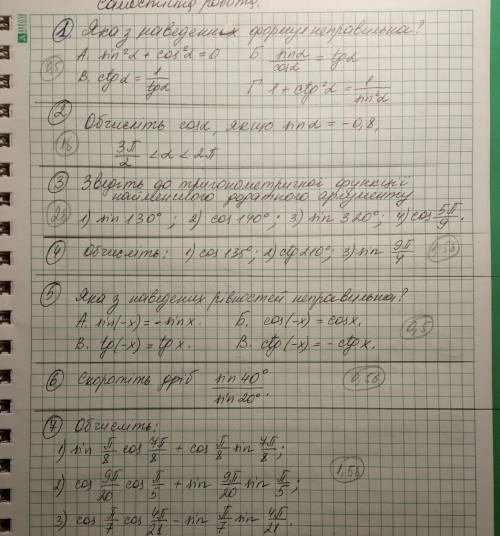 Самостійна робота.
1 Яка з наведених формул неправильна?
А. sin²α + cos²α = 0 Б sinα/cosα = tgα
0,5
В. ctgα = 1/tgα Г 1 + ctg²α = 1/sin²α
2 Обчисліть cosα, якщо sinα = -0,8,
1б
3π/2 < α < 2π
3 Зведіть до тригонометричної функції
найменшого додатного аргументу
2б 1) sin 130° ; 2) cos 140° ; 3) sin 320° ; 4) cos 5π/9.
4 Обчисліть: 1) cos 135° ; 2) ctg 210° ; 3) sin 9π/4 1,5б
5 Яка з наведених рівностей неправильна?
А. sin(-x) = -sinx. Б. cos(-x) = cosx.
0,5
В. tg(-x) = tgx. В. ctg(-x) = -ctgx.
6 Скоротіть дріб sin40°/sin20°. 0,5б
7 Обчисліть:
1) sin π/8 cos 7π/8 + cos π/8 sin 7π/8 ;
1,5б
2) cos 9π/20 cos π/5 + sin 9π/20 sin π/5 ;
3) cos π/7 cos 4π/21 - sin π/7 sin 4π/21.